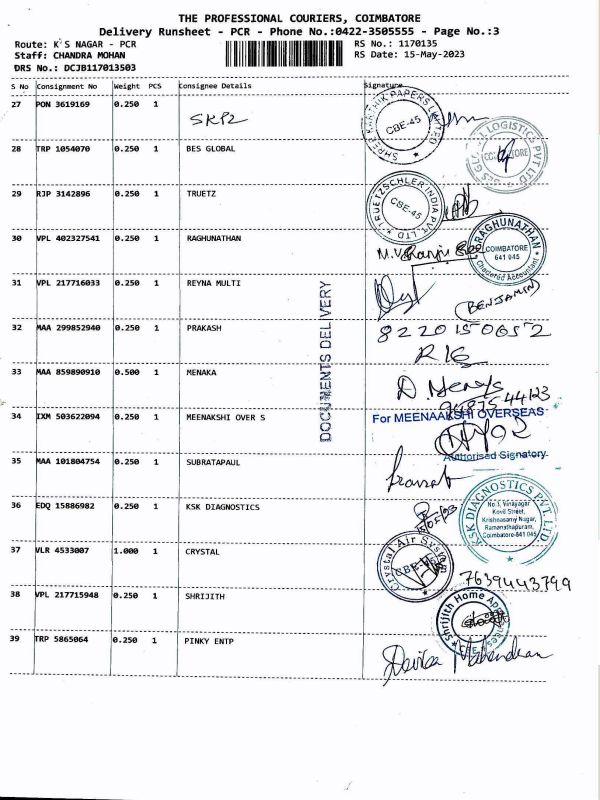 THE PROFESSIONAL COURIERS, COIMBATORE
Delivery Runsheet - PCR - Phone No.:0422-3505555 - Page No.:3
Route: K'S NAGAR - PCR
RS No.: 1170135
Staff: CHANDRA MOHAN
RS Date: 15-May-2023
DRS No.: DCJB117013503
S No Consignment No Weight PCS Consignee Details Signature
27 PON 3619169 0.250 1
SHREE KARTHIK PAPERS LIMITED
CBE-45
28 TRP 1054070 0.250 1 BES GLOBAL
LOGISTICS PVT LTD
29 RJP 3142896 0.250 1 TRUETZ
TRUETZSCHLER INDIA PVT LTD
CBE-45
30 VPL 402327541 0.250 1 RAGHUNATHAN
RAGHUNATHAN
COIMBATORE
641 045
Chartered Accountant
31 VPL 217716033 0.250 1 REYNA MULTI
(BENJAMIN)
DOCUMENTS DELIVERY
32 MAA 299852940 0.250 1 PRAKASH
8220150652
33 MAA 859890910 0.500 1 MENAKA
34 IXM 503622094 0.250 1 MEENAKSHI OVER S
For MEENAAKSHI OVERSEAS
Authorised Signatory
35 MAA 101804754 0.250 1 SUBRATAPAUL
36 EDQ 15886982 0.250 1 KSK DIAGNOSTICS
KSK DIAGNOSTICS PVT. LTD
No.1, Vinayagar
Kovil Street,
Krishnasamy Nagar,
Ramanathapuram,
Coimbatore-641 045
37 VLR 4533007 1.000 1 CRYSTAL
Crystal Air System
7639443799
38 VPL 217715948 0.250 1 SHRIJITH
Shrijith Home
39 TRP 5865064 0.250 1 PINKY ENTP